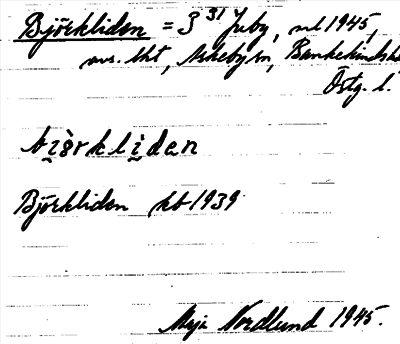 Björkliden = 3³¹ Juby, nl 1945,
avs. lht, Askeby sn, Bankekinds hd
Östg. l.
bi̬ör̀kli̬dan
Björkliden kb 1939
Maja Nordlund 1945.